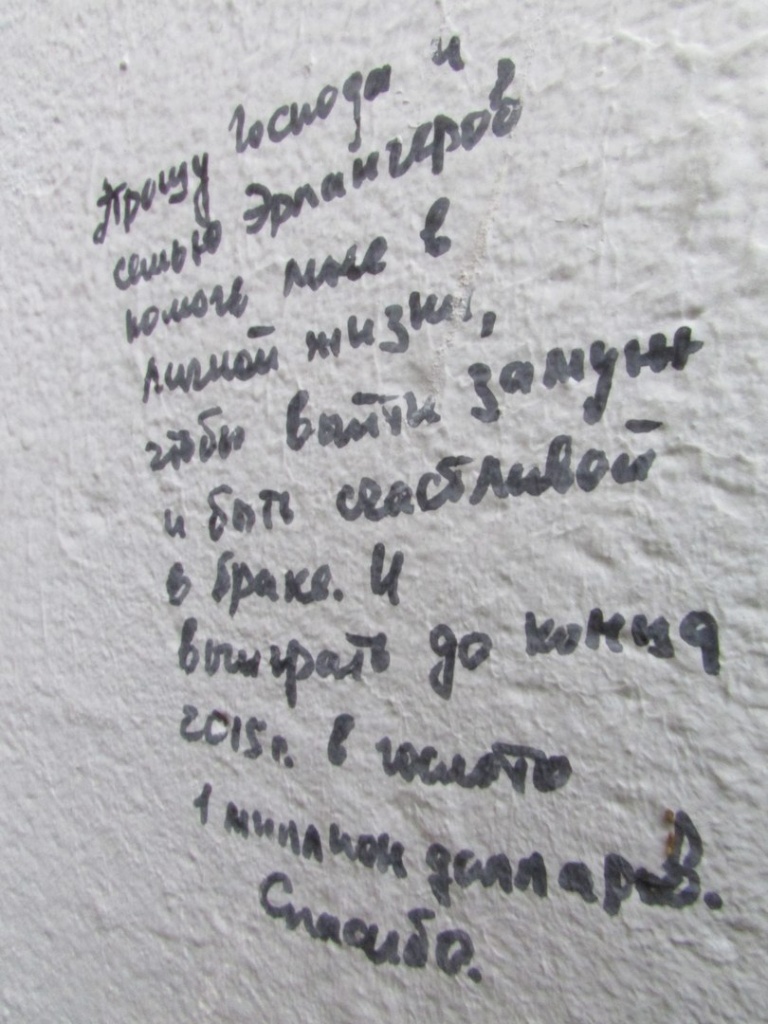 Прошу Господа и
семью Эрлангеров
помочь мне в
личной жизни,
чтобы выйти замуж
и быть счастливой
в браке. И
выиграть до конца
2015г. в гослото
1 миллион долларов.
Спасибо.